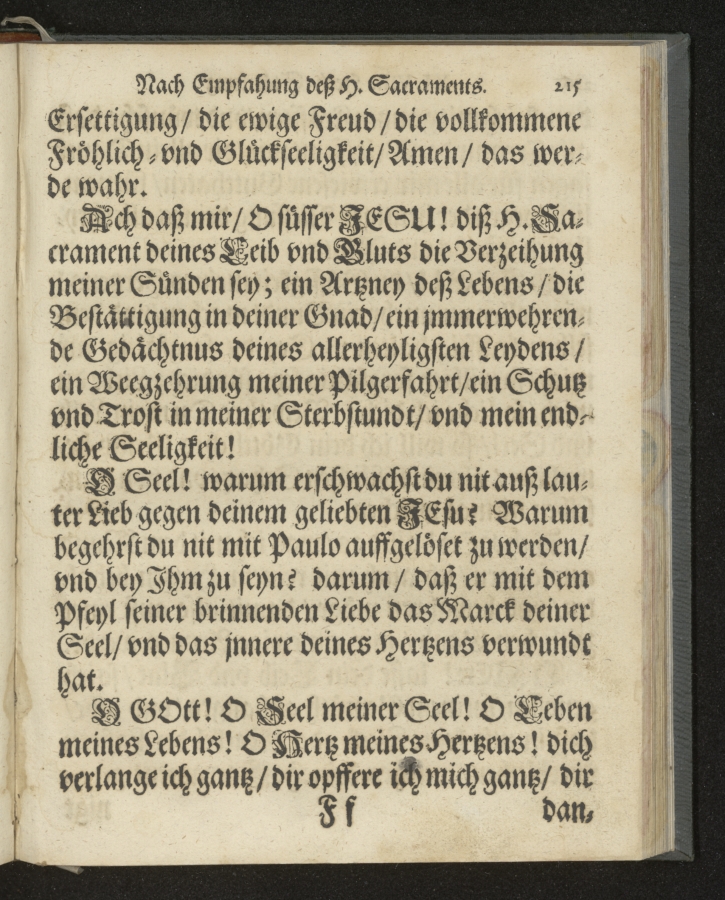 Nach Empfahung deß H. Sacraments. 215
Ersettigung / die ewige Freud / die vollkommene
Fröhlich- vnd Glückseeligkeit / Amen / das wer-
de wahr.
Ach daß mir / O süsser JESU! diß H. Sa-
crament deines Leib vnd Bluts die Verzeihung
meiner Sünden sey; ein Artzney deß Lebens / die
Bestättigung in deiner Gnad / ein jmmerwehren-
de Gedächtnus deines allerheyligsten Leydens /
ein Weegzehrung meiner Pilgerfahrt / ein Schutz
vnd Trost in meiner Sterbstundt / vnd mein end-
liche Seeligkeit!
O Seel! warum erschwachst du nit auß lau-
ter Lieb gegen deinem geliebten JEsu? Warum
begehrst du nit mit Paulo auffgelöset zu werden /
vnd bey Ihm zu seyn? darum / daß er mit dem
Pfeyl seiner brinnenden Liebe das Marck deiner
Seel / vnd das jnnere deines Hertzens verwundt
hat.
O GOtt! O Seel meiner Seel! O Leben
meines Lebens! O Hertz meines Hertzens! dich
verlange ich gantz / dir opffere ich mich gantz / dir
Ff dan-